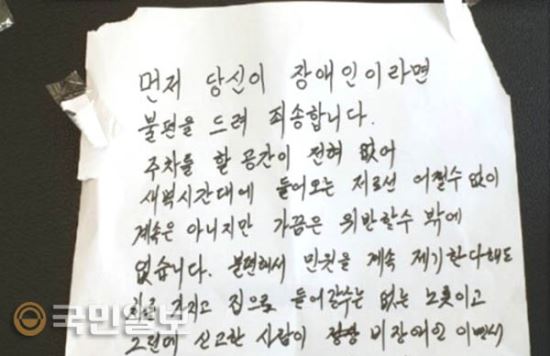 먼저 당신이 장애인이라면
불편을 드려 죄송합니다.
주차를 할 공간이 전혀 없어
새벽시간대에 들어오는 저로선 어쩔수 없이
계속은 아니지만 가끔은 위반할수 밖에
없습니다. 불편해서 민원을 계속 제기한다해도
차를 가지고 집으로 들어갈수는 없는 노릇이고
그런데 신고한 사람이 비장애인 이면서
국민일보